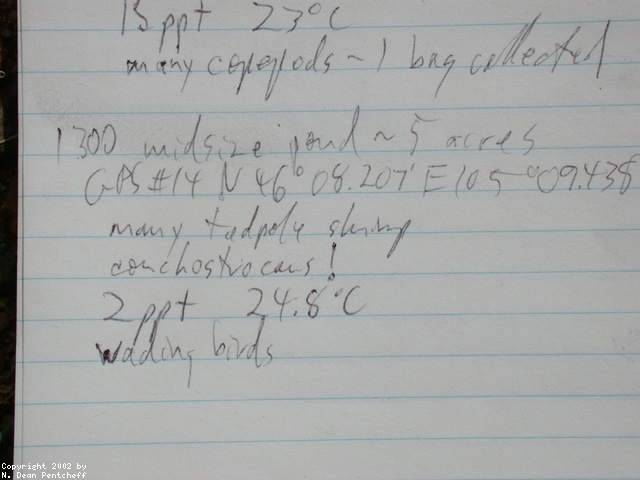 13 ppt 23°C
many copepods ~ 1 bag collected
1300 midsize pond ~ 5 acres
GPS #14 N 46° 08.207' E 105° 09.438
many tadpole shrimp
conchostracans!
2ppt 24.8°C
wading birds
Copyright 2002 by
N. Dean Pentcheff